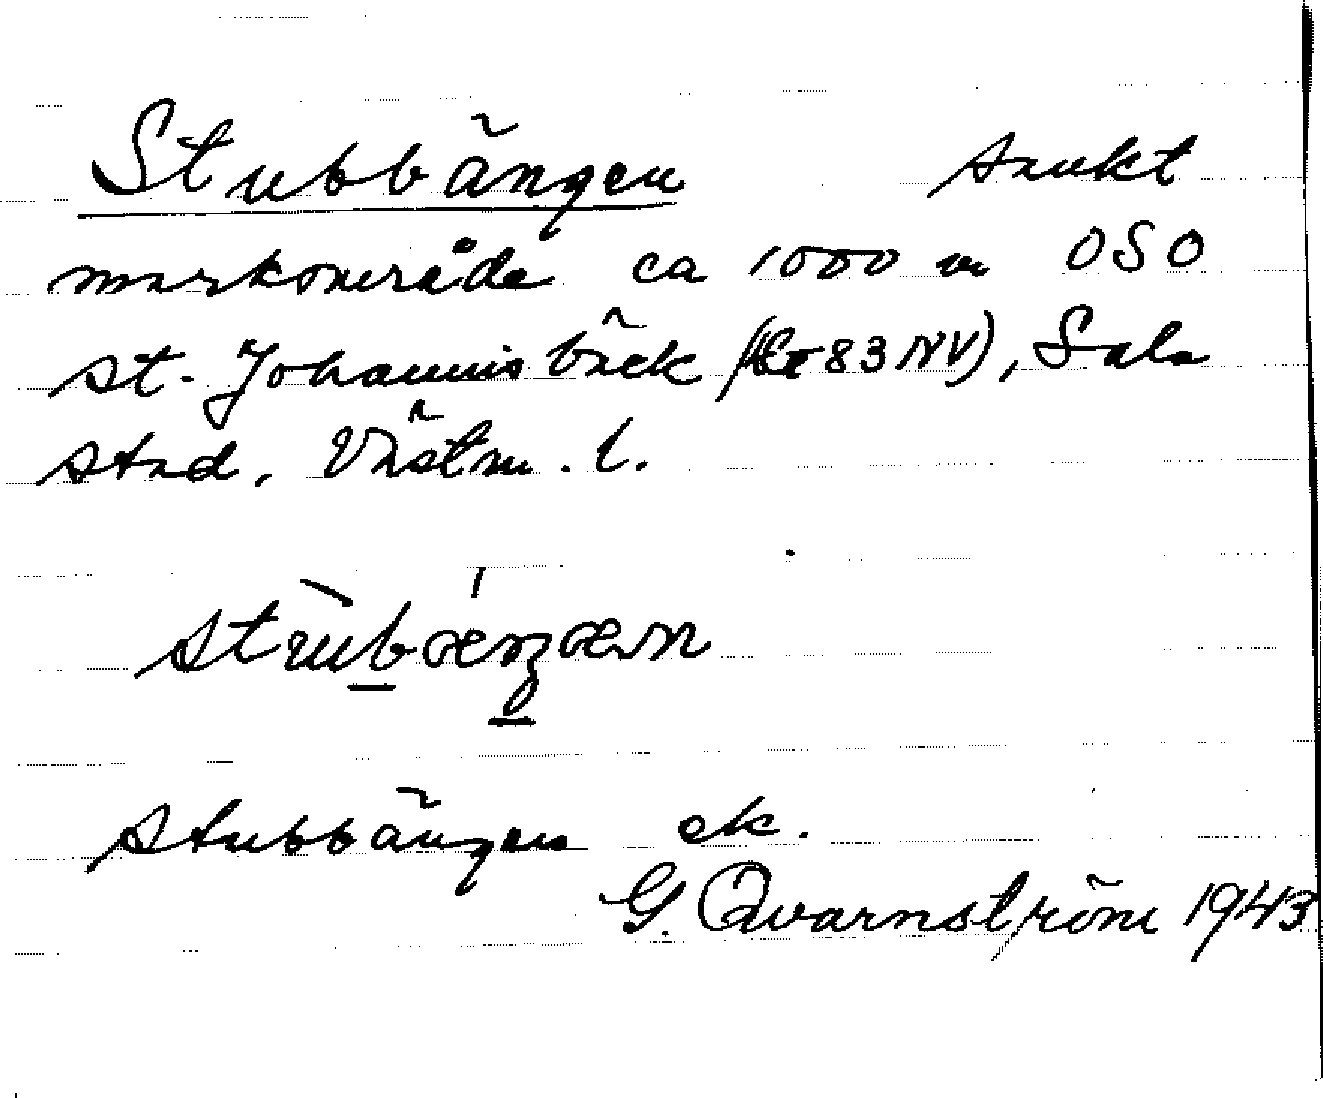 Stubbängen sankt
markområde ca 1000 m OSO
St. Johannisbäck (83 NV), Sala
stad, Västm. l.
stubbängen ek.
G. Qvarnström 1943